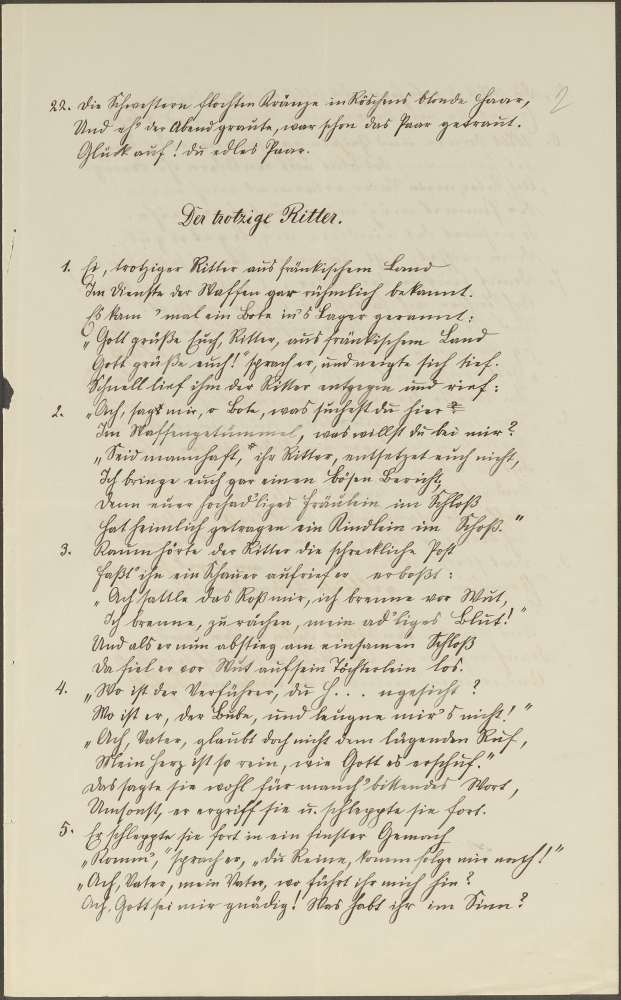 2
22. Die Schwestern flochten Kränze in Röschens blonde Haar,
Und eh' der Abend graute, war schon das Paar getraut.
Glück auf! du edles Paar.
Der trotzige Ritter.
1. Ei, trotziger Ritter aus fränkischem Land
Im Dienste der Waffen gar rühmlich bekannt.
Es kam 'mal ein Bote in's Lager gerannt:
"Gott grüße Euch, Ritter, aus fränkischem Land
Gott grüße euch!" sprach er, und neigte sich tief.
Schnell lief ihm der Ritter entgegen und rief:
2. "Ach, sag mir, o Bote, was suchest du hier?
Im Waffengetümmel, was willst du bei mir?
"Seid mannhaft," ihr Ritter, entsetzet euch nicht,
Ich bringe euch gar einen bösen Bericht,
Denn euer hochad'liges Fräulein im Schloß
Hat heimlich getragen ein Kindlein im Schoß."
3. Kaum hörte der Ritter die schreckliche Post
Faßt' ihn ein Schauer auf rief er erboßt:
"Ach sattle das Roß mir, ich brenne vor Wut,
Ich brenne, zu rächen, mein ad'liges Blut!"
Und als er nun abstieg am einsamen Schloß
Da fiel er vor Wut auf sein Töchterlein los.
4. "Wo ist der Verführer, du H... ngesicht?
Wo ist er, der Bube, und leugne mir's nicht!"
"Ach, Vater, glaubt doch nicht dem lügenden Ruf,
Mein Herz ist so rein, wie Gott es erschuf."
Das sagte sie wohl für manch' bittendes Wort,
Umsonst, er ergriff sie u. schleppte sie fort.
5. Er schleppte sie fort in ein finster Gemach
"Komm'," sprach er, "du Reine, komm folge mir nach!"
"Ach, Vater, mein Vater, wo führt ihr mich hin?
Ach, Gott sei mir gnädig! Was habt ihr im Sinn?